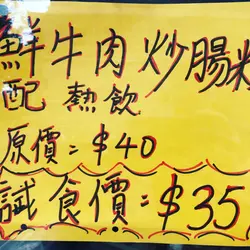 鮮牛肉炒腸粉
配熱飲
原價:$40
試食價:$35